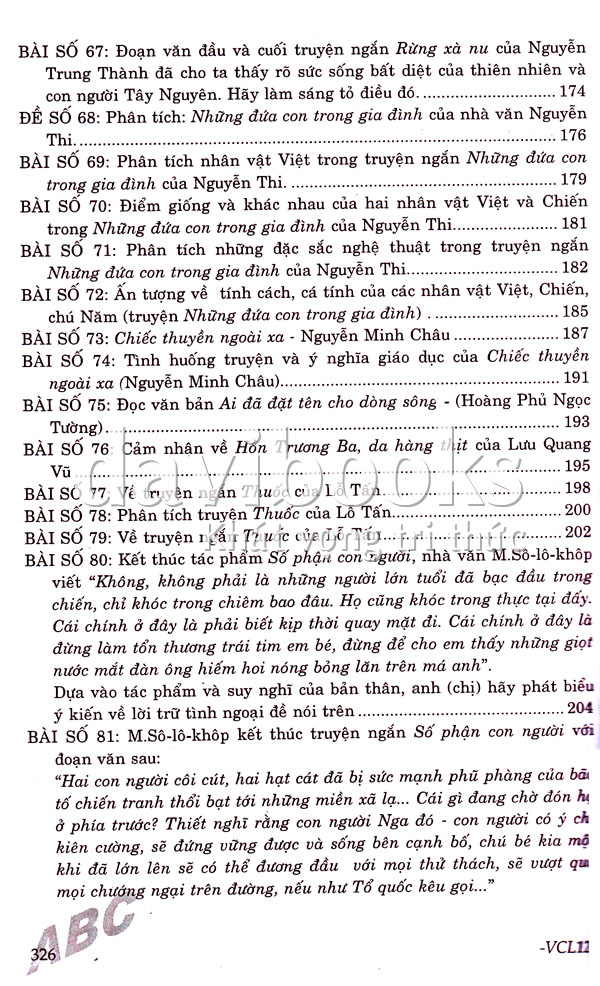 BÀI SỐ 67: Đoạn văn đầu và cuối truyện ngắn Rừng xà nu của Nguyễn
Trung Thành đã cho ta thấy rõ sức sống bất diệt của thiên nhiên và
con người Tây Nguyên. Hãy làm sáng tỏ điều đó. .......................... 174
ĐỀ SỐ 68: Phân tích: Những đứa con trong gia đình của nhà văn Nguyễn
Thi. .......................... 176
BÀI SỐ 69: Phân tích nhân vật Việt trong truyện ngắn Những đứa con
trong gia đình của Nguyễn Thi. .......................... 179
BÀI SỐ 70: Điểm giống và khác nhau của hai nhân vật Việt và Chiến
trong Những đứa con trong gia đình của Nguyễn Thi.................... 181
BÀI SỐ 71: Phân tích những đặc sắc nghệ thuật trong truyện ngắn
Những đứa con trong gia đình của Nguyễn Thi.......................... 182
BÀI SỐ 72: Ấn tượng về tính cách, cá tính của các nhân vật Việt, Chiến,
chú Năm (truyện Những đứa con trong gia đình) . .................... 185
BÀI SỐ 73: Chiếc thuyền ngoài xa - Nguyễn Minh Châu .................... 187
BÀI SỐ 74: Tình huống truyện và ý nghĩa giáo dục của Chiếc thuyền
ngoài xa (Nguyễn Minh Châu).......................... 191
BÀI SỐ 75: Đọc văn bản Ai đã đặt tên cho dòng sông - (Hoàng Phủ Ngọc
Tường).......................... 193
BÀI SỐ 76: Cảm nhận về Hồn Trương Ba, da hàng thịt của Lưu Quang
Vũ .......................... 195
BÀI SỐ 77: Về truyện ngắn Thuốc của Lỗ Tấn.......................... 198
BÀI SỐ 78: Phân tích truyện Thuốc của Lỗ Tấn.......................... 200
BÀI SỐ 79: Về truyện ngắn Thuốc của Lỗ Tấn.......................... 202
davibooks
Khát vọng tri thức
BÀI SỐ 80: Kết thúc tác phẩm Số phận con người, nhà văn M.Sô-lô-khôp
viết “Không, không phải là những người lớn tuổi đã bạc đầu trong
chiến, chỉ khóc trong chiêm bao đâu. Họ cũng khóc trong thực tại đấy.
Cái chính ở đây là phải biết kịp thời quay mặt đi. Cái chính ở đây là
đừng làm tổn thương trái tim em bé, đừng để cho em thấy những giọt
nước mắt đàn ông hiếm hoi nóng bỏng lăn trên má anh”.
Dựa vào tác phẩm và suy nghĩ của bản thân, anh (chị) hãy phát biểu
ý kiến về lời trữ tình ngoại đề nói trên .......................... 204
BÀI SỐ 81: M.Sô-lô-khôp kết thúc truyện ngắn Số phận con người với
đoạn văn sau:
“Hai con người côi cút, hai hạt cát đã bị sức mạnh phũ phàng của bão
tố chiến tranh thổi bạt tới những miền xã lạ... Cái gì đang chờ đón
ở phía trước? Thiết nghĩ rằng con người Nga đó - con người có ý
kiên cường, sẽ đứng vững được và sống bên cạnh bố, chú bé kia
khi đã lớn lên sẽ có thể đương đầu với mọi thử thách, sẽ vượt
mọi chướng ngại trên đường, nếu như Tổ quốc kêu gọi...”
ABC
326
-VCL12